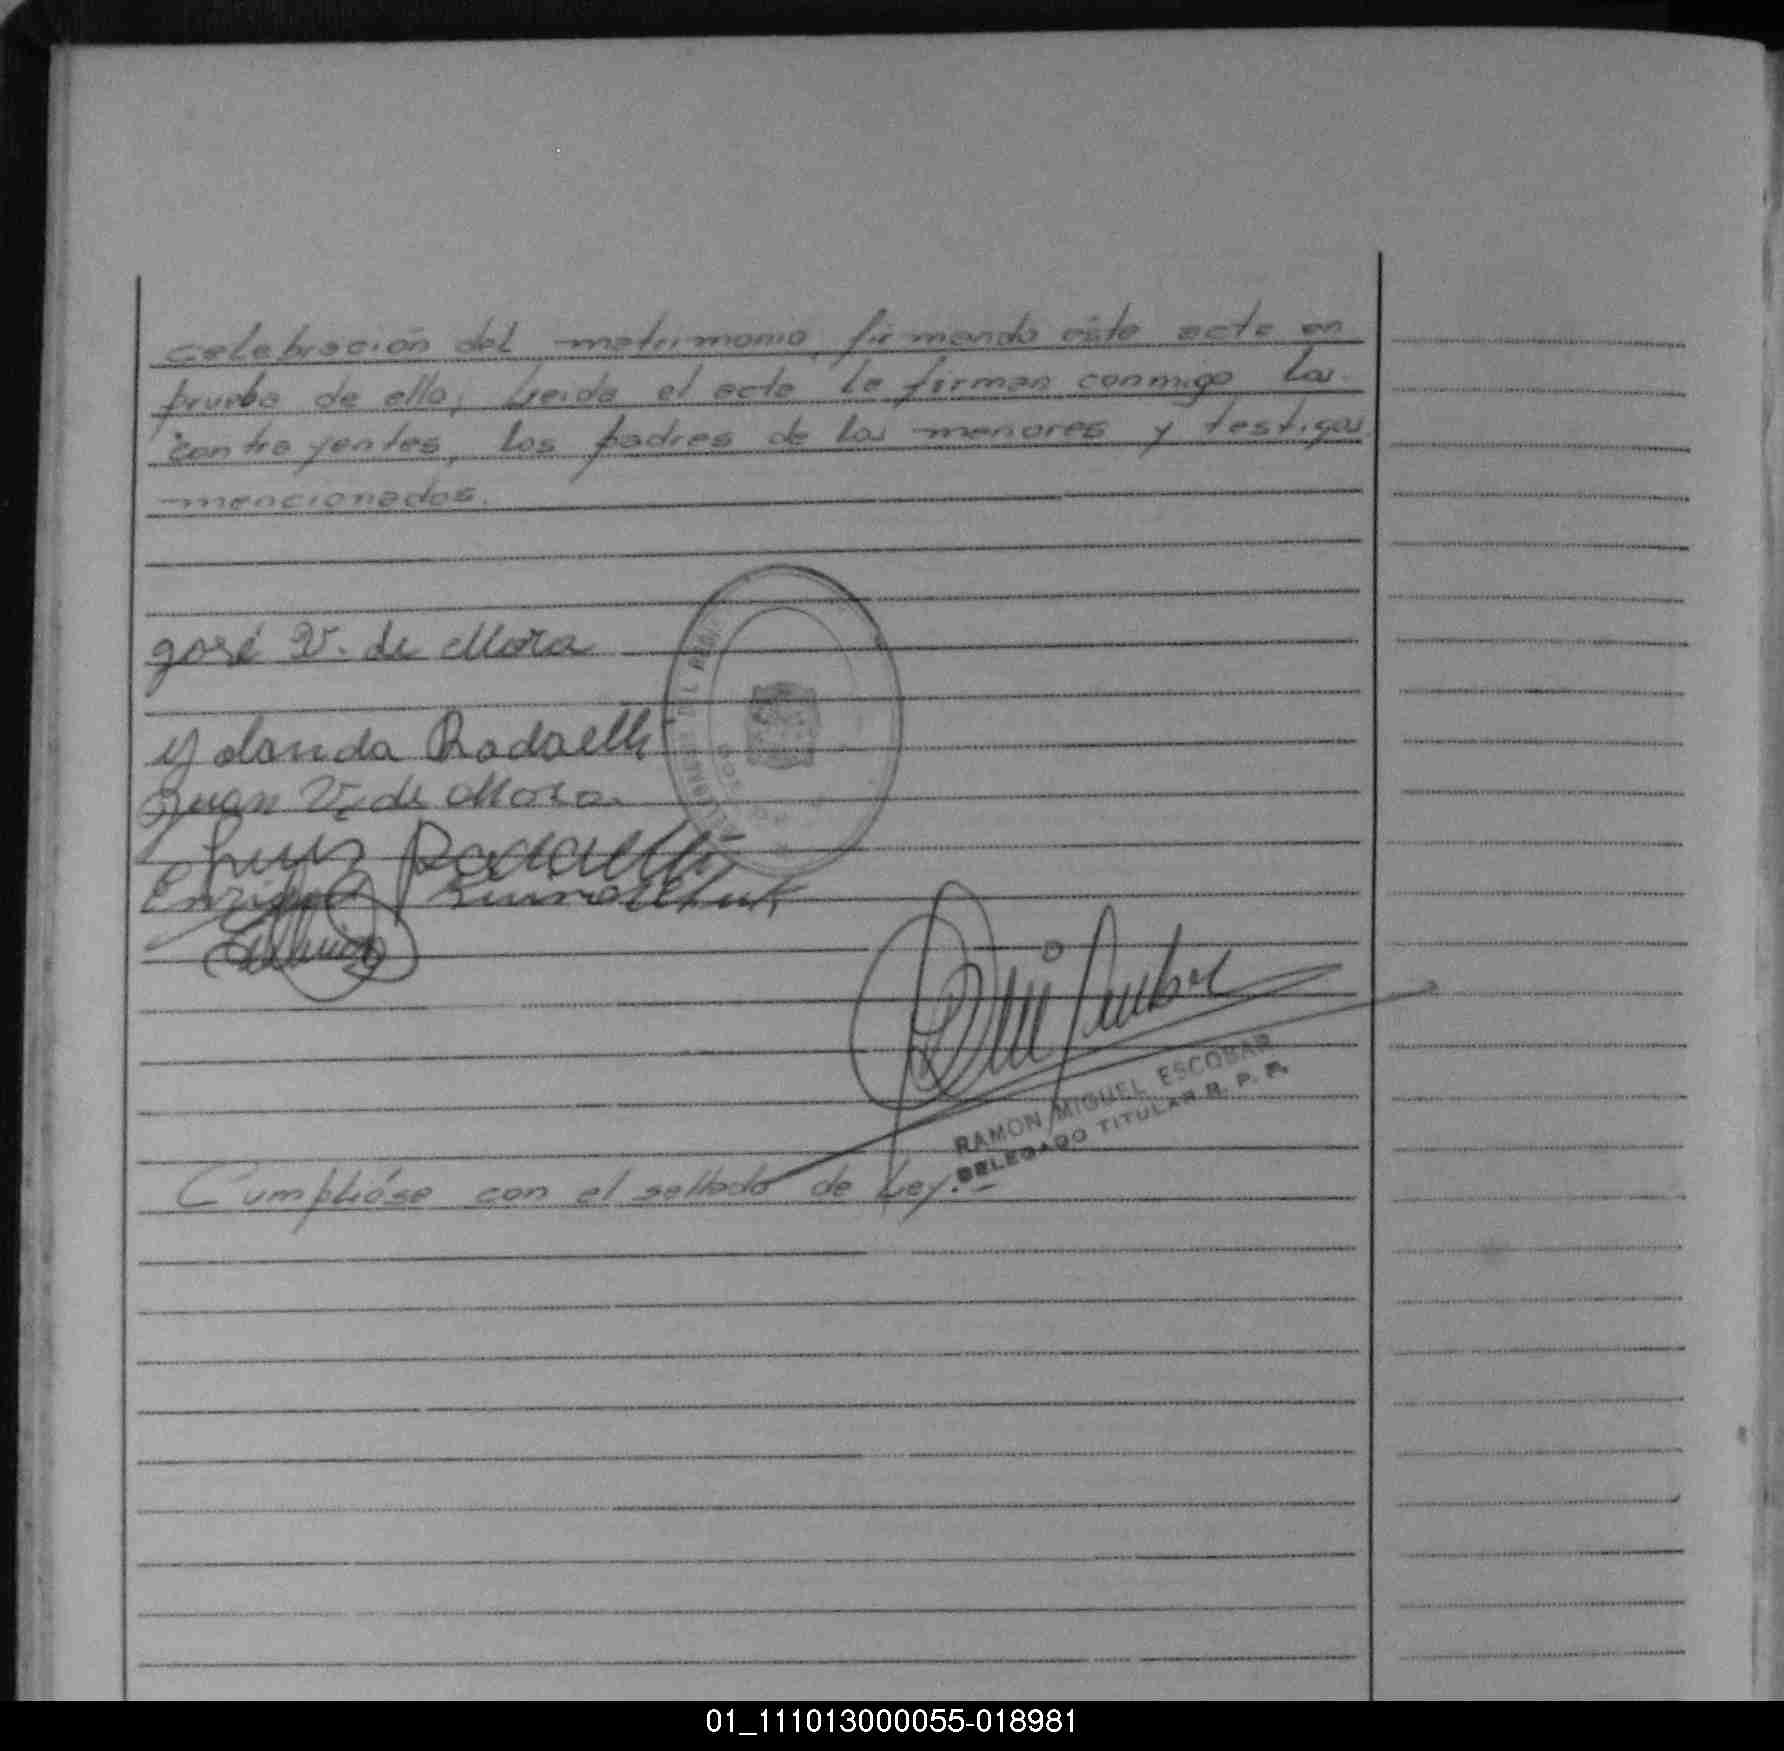 celebración del matrimonio, firmando éste acto en
prueba de ello; Leida el acta la firman conmigo los
contrayentes, los padres de los menores y testigos
mencionados.
José V. de Mora
Yolanda Radaelli
Juan V. de Mora
Luis Radaelli
Enrique
RAMON MIGUEL ESCOBAR
DELEGADO TITULAR R. P. P.
Cumplióse con el sellado de Ley.-
01_111013000055-018981